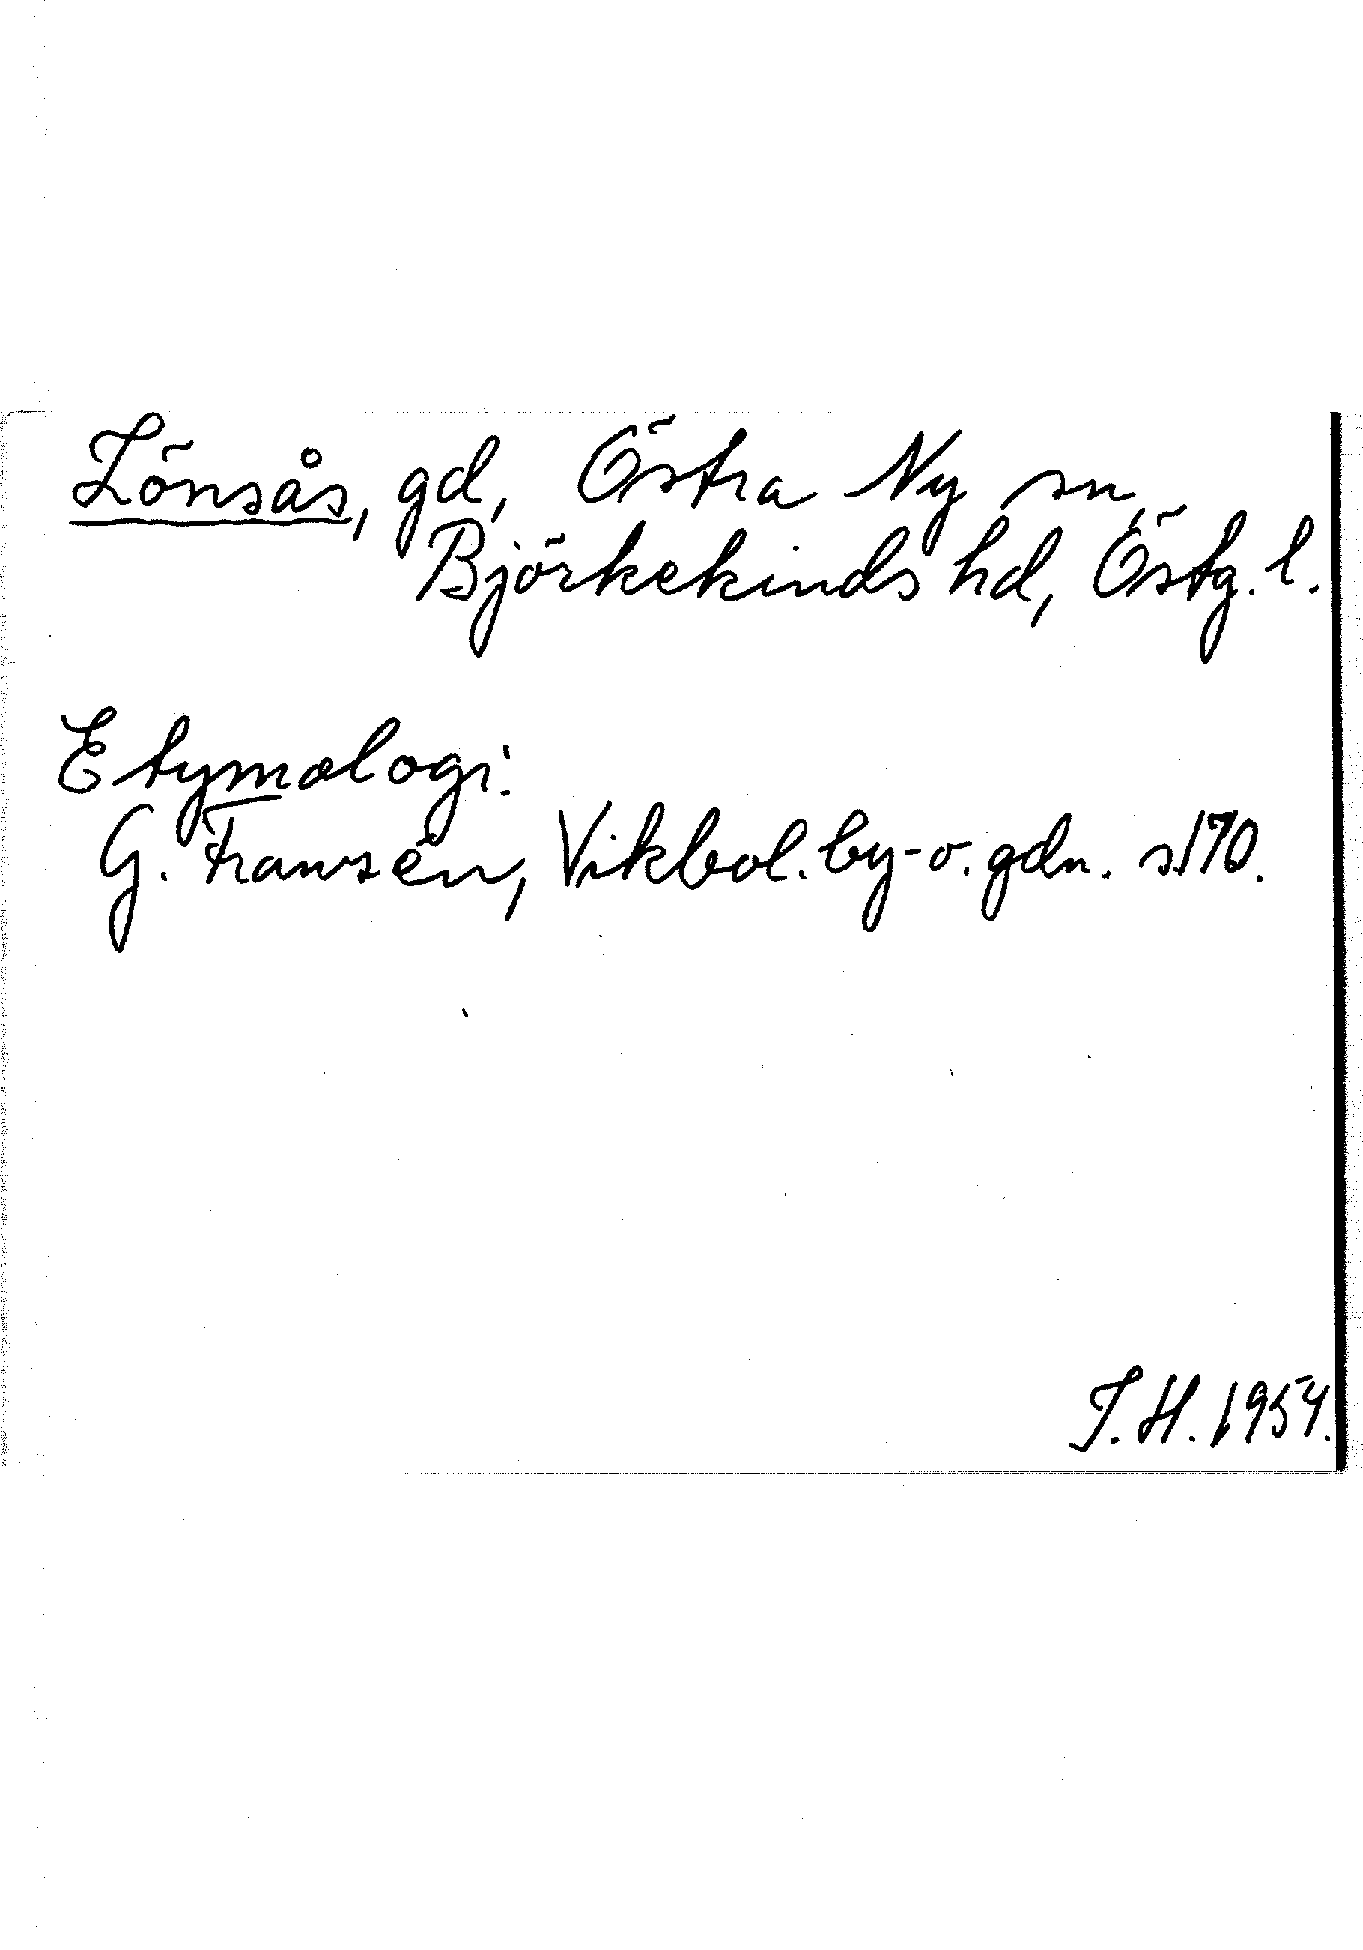 Lönsås, gd, Östra Ny sn,
Björkekinds hd, Östg. l.
Etymologi:
G. Franzén, Vikbol. by- o. gdn. s.170.
T.H. 1954.